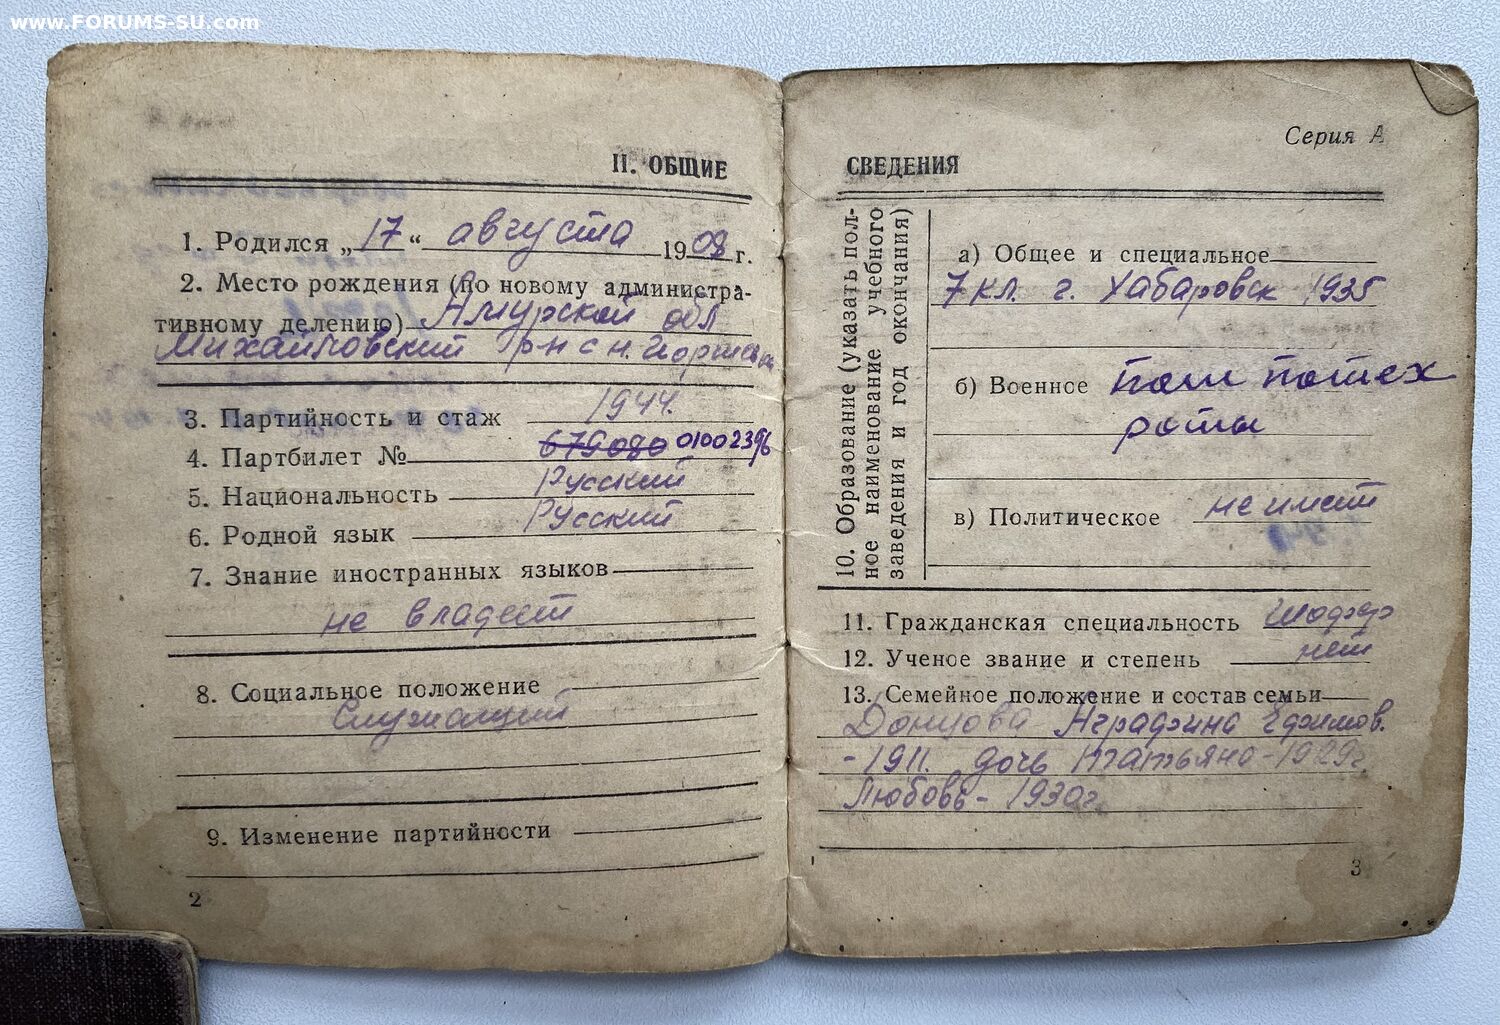 www.FORUMS-SU.com
II. ОБЩИЕ
1. Родился „17“ августа 1908 г.
2. Место рождения (по новому администра-
тивному делению) Амурской обл
Михайловский р-н с н.
3. Партийность и стаж 1944.
4. Партбилет № 679080 01002396
5. Национальность Русский
6. Родной язык Русский
7. Знание иностранных языков
не владеет
8. Социальное положение
Служащий
9. Изменение партийности
2
Серия А
СВЕДЕНИЯ
10. Образование (указать пол-
ное наименование учебного
заведения и год окончания)
а) Общее и специальное
7 кл. г. Хабаровск 1935
б) Военное
роты
в) Политическое не имеет
11. Гражданская специальность Шофер
12. Ученое звание и степень нет
13. Семейное положение и состав семьи
Донцова Аграфина Ефимов.
- 1911. дочь Татьяна - 1929г
Любовь - 1930г.
3